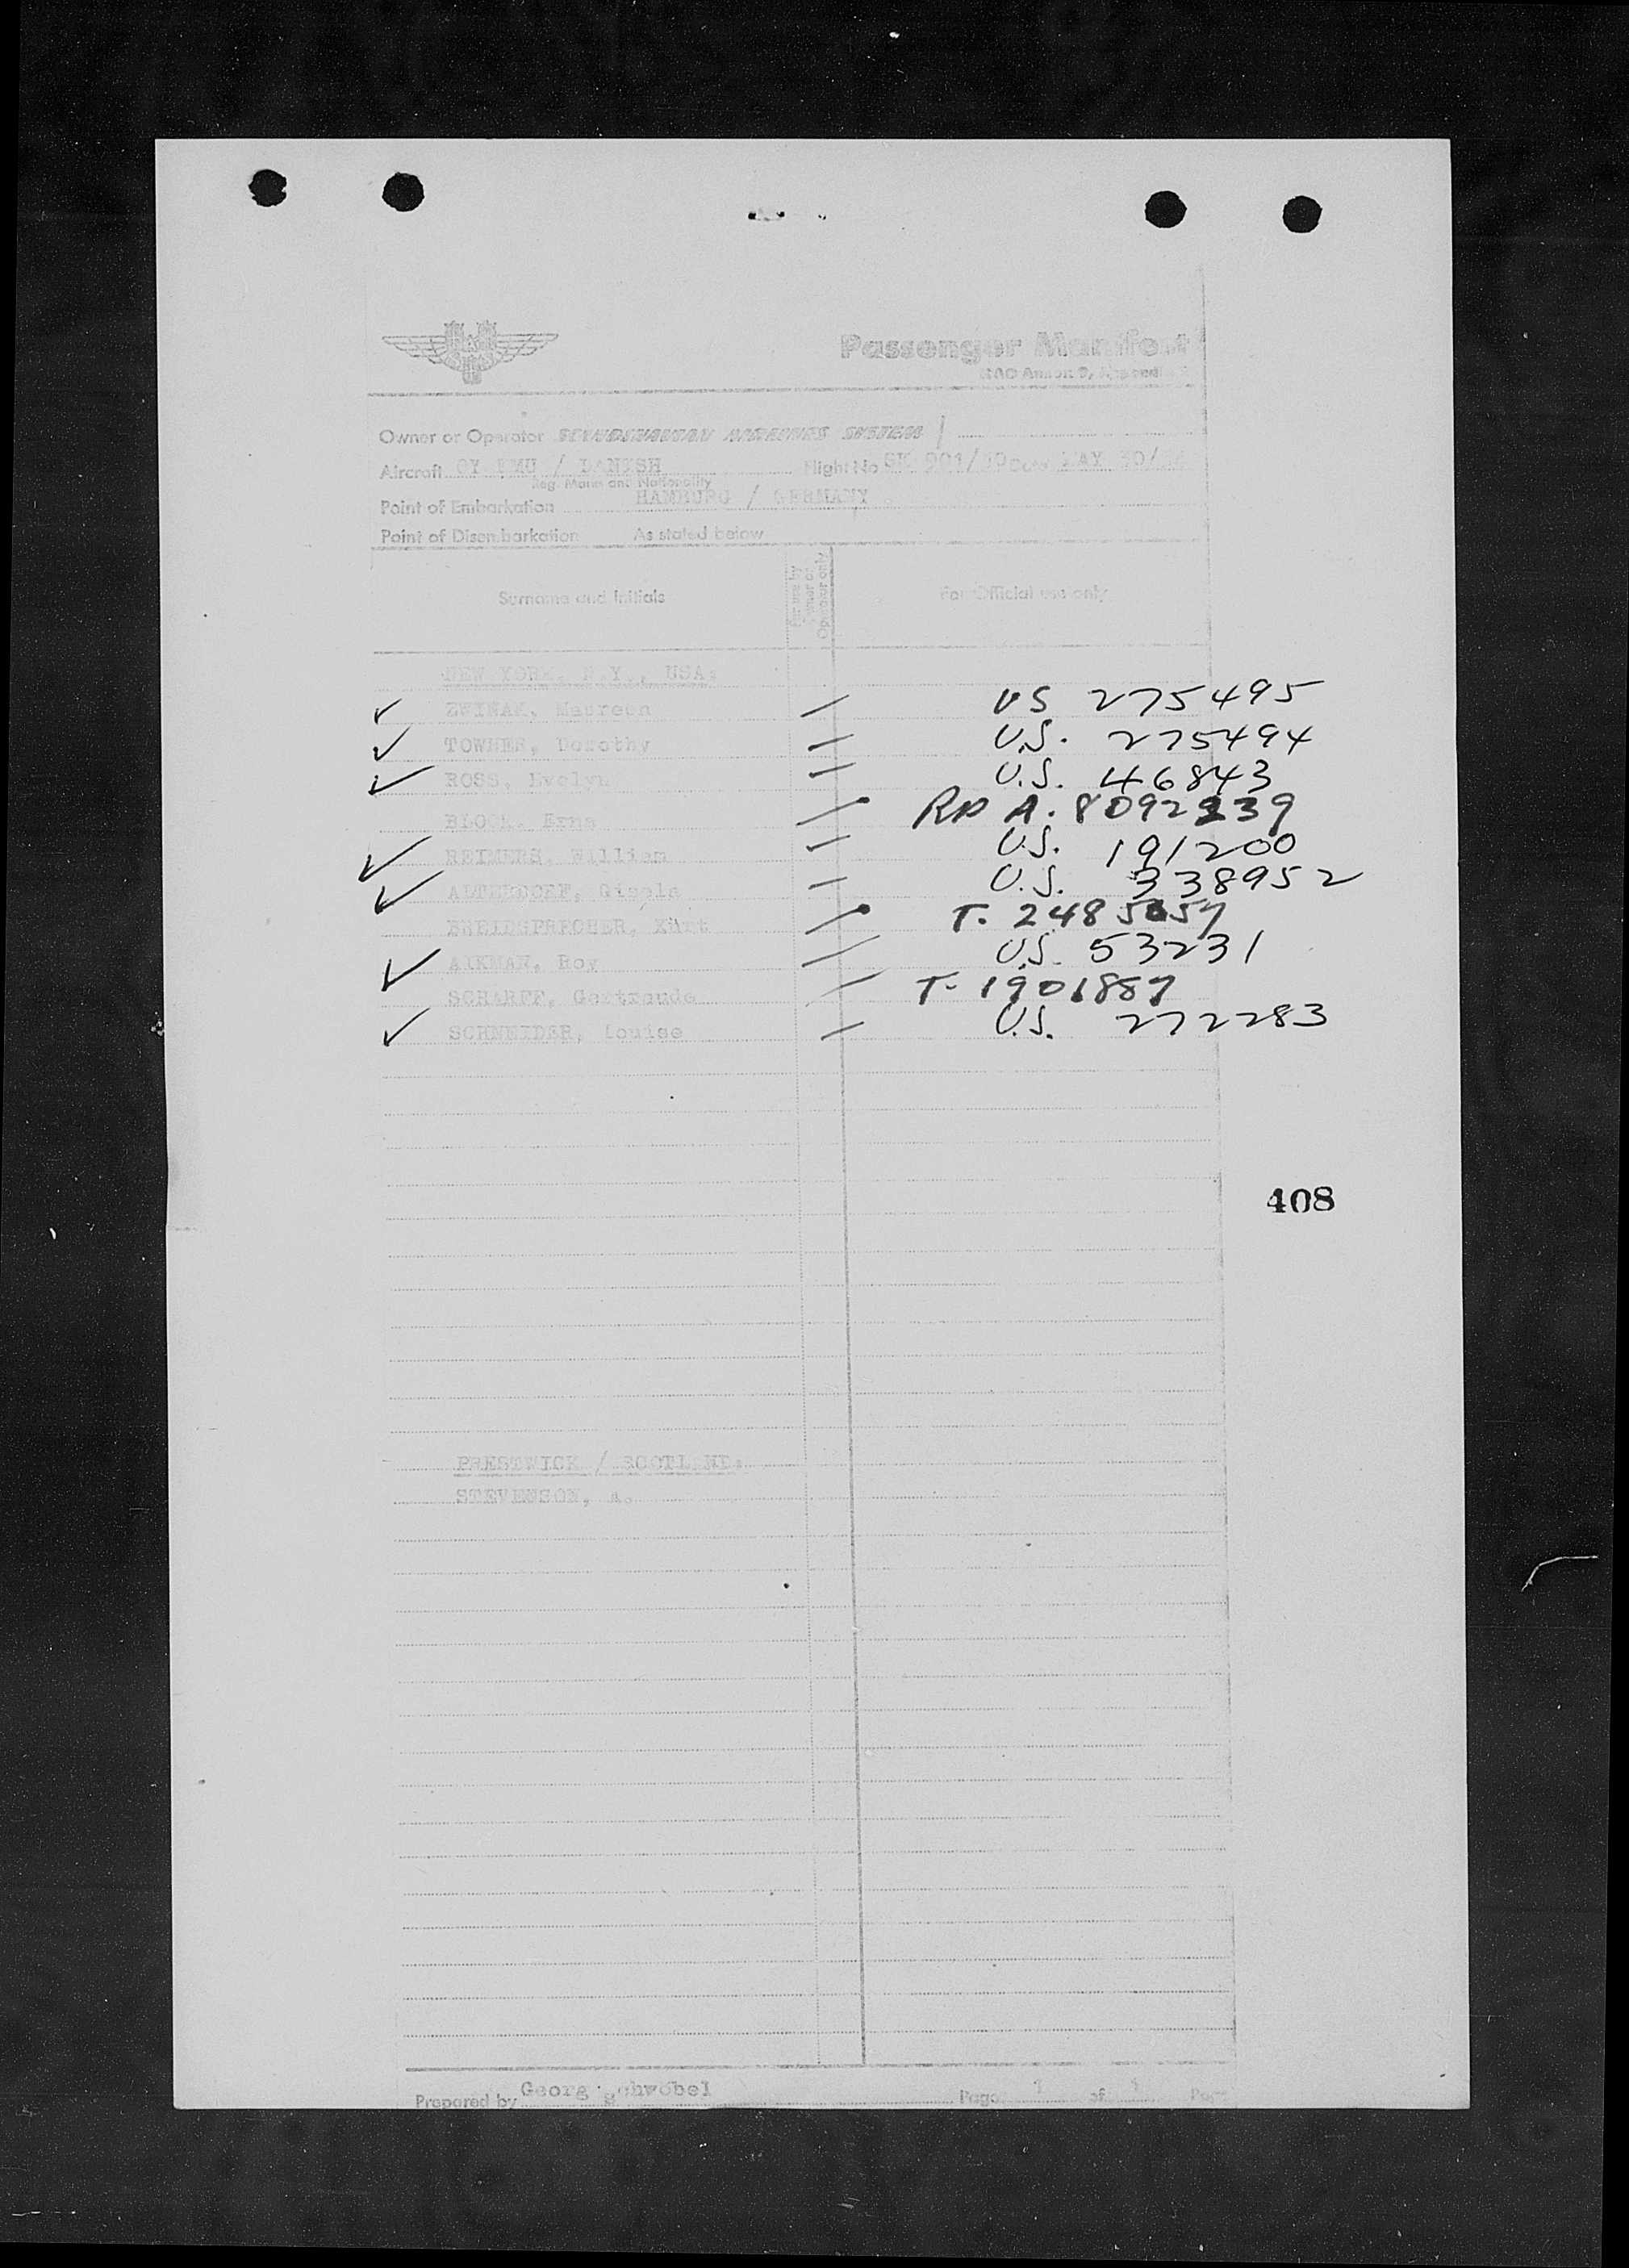 Passenger Manifest
ICAO Annex 9, Appendix
Owner or Operator SCANDINAVIAN AIRLINES SYSTEM
Aircraft OY / DANISH Flight No SK 901/ Date MAY 30/
Reg. Marks and Nationality
Point of Embarkation HAMBURG / GERMANY
Point of Disembarkation As stated below
Surname and Initials
For use by Owner or Operator only
For Official use only
NEW YORK, N.Y., USA:
Maureen US 275495
TOWNER, Dorothy U.S. 275494
ROSS, Evelyn U.S. 46843
BLOOM, Erna A. 8092239
REIMERS, William U.S. 191200
Gisela U.S. 338952
Kurt T.
AIKMAN, Roy U.S. 53231
SCHARFF, Gertraude T- 1901887
SCHNEIDER, Louise U.S. 272283
408
PRESTWICK / SCOTLAND:
STEVENSON, A.
Prepared by Georg Schwöbel Page 1 of 1